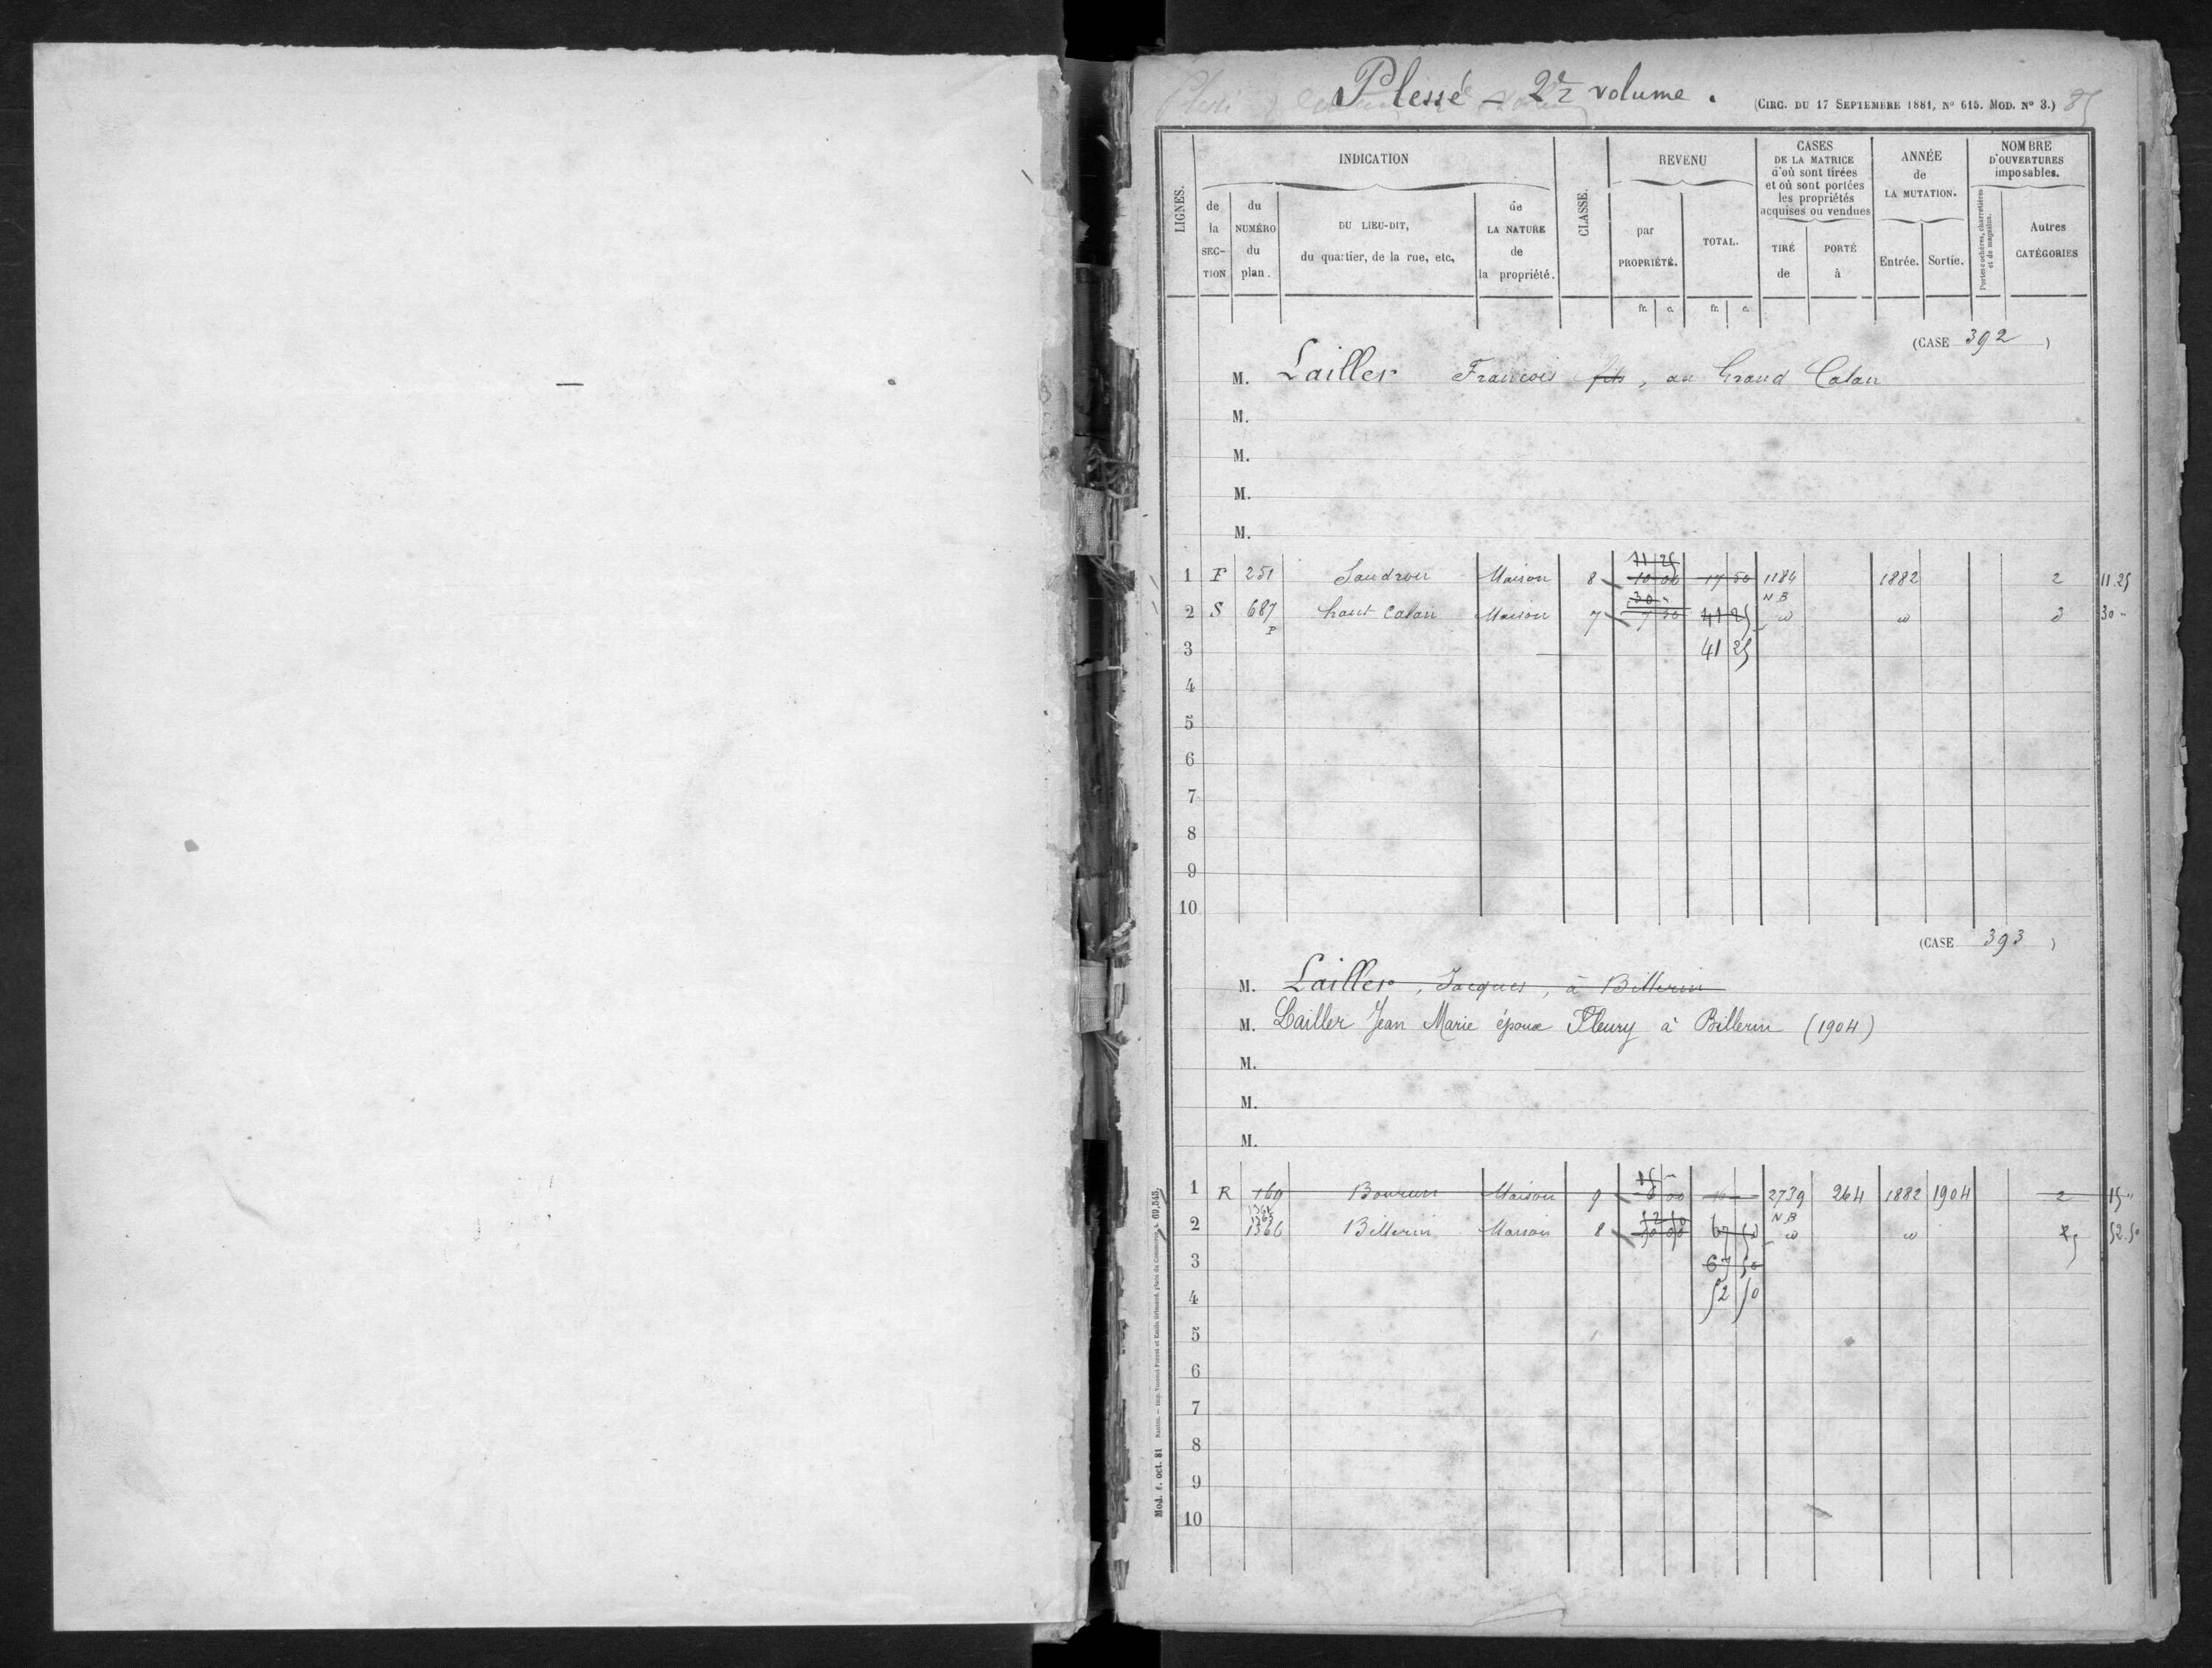 Plessé – 2e volume.
(CIRC. DU 17 SEPTEMBRE 1881, Nº 615. MOD. Nº 3.) 85
LIGNES. INDICATION CLASSE. REVENU CASES DE LA MATRICE d'où sont tirées et où sont portées les propriétés acquises ou vendues ANNÉE de LA MUTATION. NOMBRE D'OUVERTURES imposables.
de la SECTION du NUMÉRO du plan. DU LIEU-DIT, du quartier, de la rue, etc. de LA NATURE de la propriété. par PROPRIÉTÉ. TOTAL. TIRÉ de PORTÉ à Entrée. Sortie. Portes cochères, charretières et de magasins. Autres CATÉGORIES
fr. c. fr. c.
(CASE 392)
M. Lailler François fils, au Grand Calan
M.
M.
M.
M.
11 25
1 F 251 Maison 8 10 00 17 50 1184 1882 2 11.25
30 " NB
2 S 687 P haut Calan Maison 7 7 50 41 25 " " 3 30 "
3 41 25
4
5
6
7
8
9
10
(CASE 393)
M. Lailler, Jacques, à Billerin
M. Lailler Jean Marie époux Fleury à Billerin (1904)
M.
M.
M.
15 "
1 R 169 Maison 9 6 00 2739 264 1882 1904 2 15 "
1364 1365 52 50 NB
2 1366 Billerin Maison 8 67 50 " " 5 52.50
3 67 50
4 52 50
5
6
7
8
9
10
Mod. f. oct. 81 Nantes. — Imp. Vincent Forest et Émile Grimaud, place du Commerce, 4. 69,545.